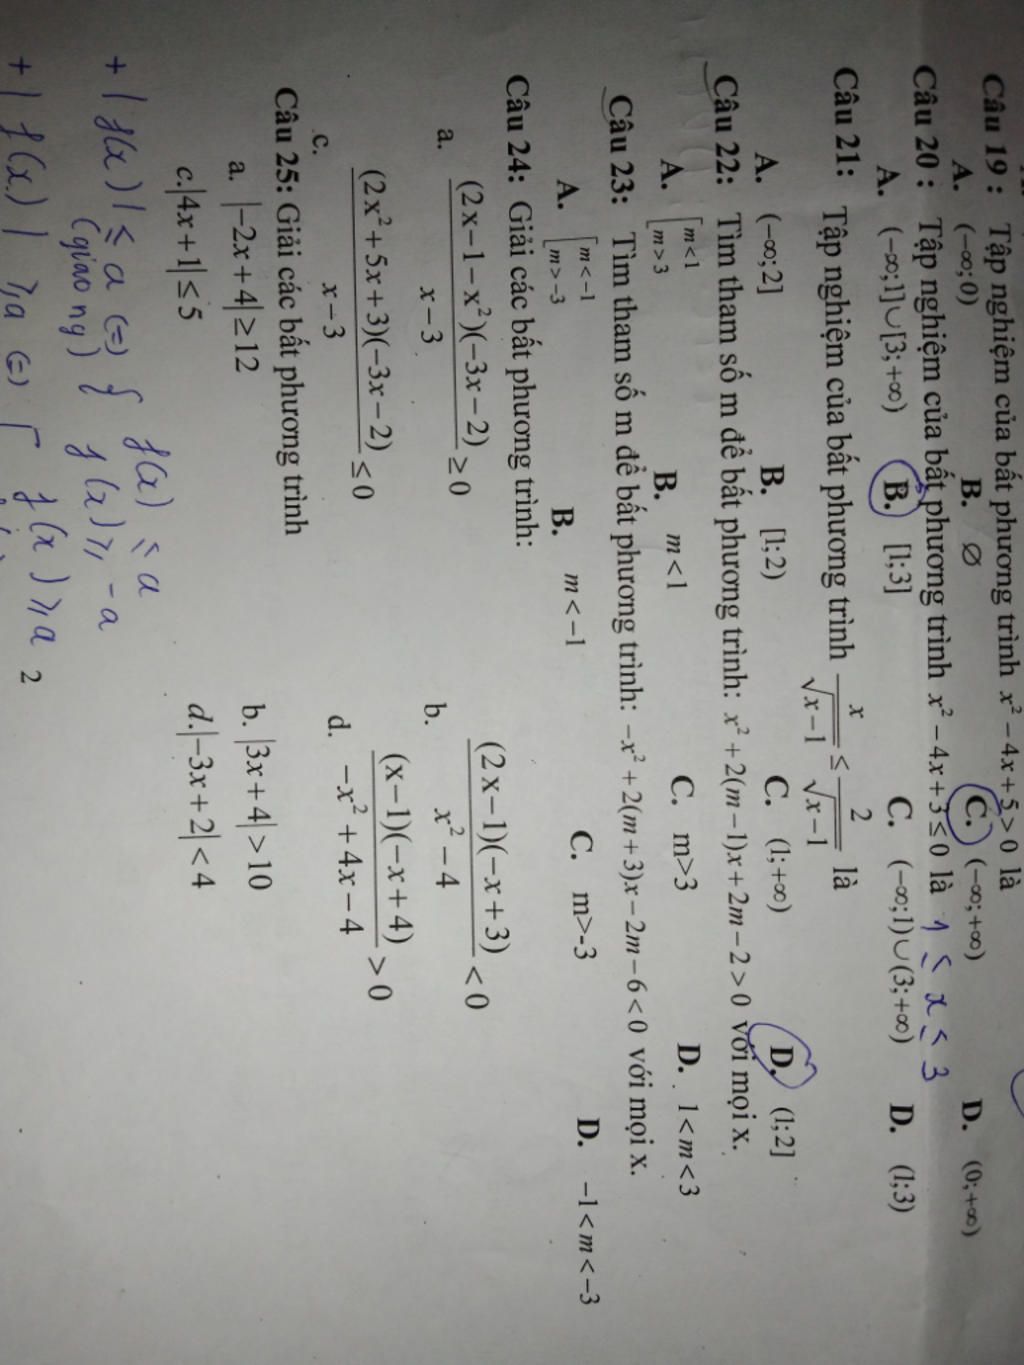 Câu 19 : Tập nghiệm của bất phương trình x² − 4x + 5 > 0 là
A. (−∞;0) B. ∅ C. (−∞;+∞) D. (0;+∞)
Câu 20 : Tập nghiệm của bất phương trình x² − 4x + 3 ≤ 0 là 1 ≤ x ≤ 3
A. (−∞;1]∪[3;+∞) B. [1;3] C. (−∞;1)∪(3;+∞) D. (1;3)
Câu 21: Tập nghiệm của bất phương trình x/√(x−1) ≤ 2/√(x−1) là
A. (−∞;2] B. [1;2) C. (1;+∞) D. (1;2]
Câu 22: Tìm tham số m để bất phương trình: x² + 2(m−1)x + 2m − 2 > 0 với mọi x.
A. [m<1 m>3 B. m<1 C. m>3 D. 1<m<3
Câu 23: Tìm tham số m để bất phương trình: −x² + 2(m+3)x − 2m − 6 < 0 với mọi x.
A. [m<−1 m>−3 B. m<−1 C. m>-3 D. −1<m<−3
Câu 24: Giải các bất phương trình:
a. (2x−1−x²)(−3x−2)/(x−3) ≥ 0 b. (2x−1)(−x+3)/(x²−4) < 0
c. (2x²+5x+3)(−3x−2)/(x−3) ≤ 0 d. (x−1)(−x+4)/(−x²+4x−4) > 0
Câu 25: Giải các bất phương trình
a. |−2x+4| ≥ 12 b. |3x+4| > 10
c.|4x+1| ≤ 5 d.|−3x+2| < 4
+ |f(x)| ≤ a (=) { f(x) ≤ a
(giao ng) f(x) ≥ -a
+ |f(x)| ≥ a (=) [ f(x) ≥ a
2